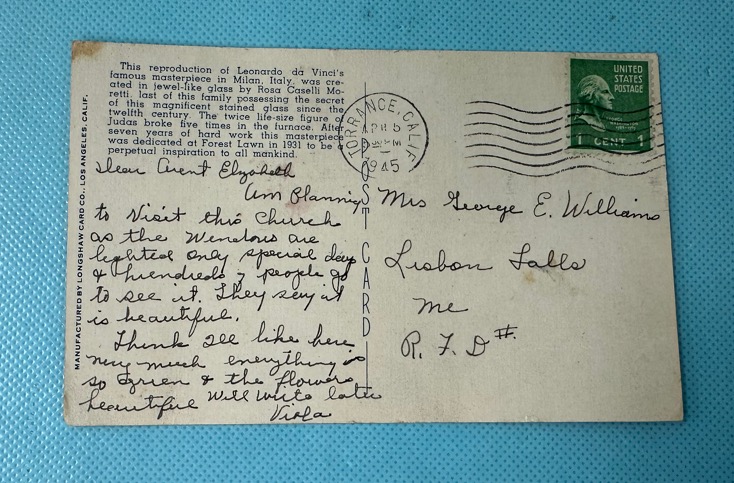 This reproduction of Leonardo da Vinci's
famous masterpiece in Milan, Italy, was cre-
ated in jewel-like glass by Rosa Caselli Mo-
retti, last of this family possessing the secret
of this magnificent stained glass since the
twelfth century. The twice life-size figure of
Judas broke five times in the furnace. After
seven years of hard work this masterpiece
was dedicated at Forest Lawn in 1931 to be a
perpetual inspiration to all mankind.
MANUFACTURED BY LONGSHAW CARD CO., LOS ANGELES, CALIF.
Dear Aunt Elizabeth
Am Planning
to Visit this Church
as the Windows are
lighted only special days
& hundreds of people go
to see it. They say it
is beautiful.
Think I'll like here
very much everything is
so green & the flowers
beautiful Will write later
Viola
POST CARD
TORRANCE, CALIF.
APR 5
1945
UNITED
STATES
POSTAGE
1 CENT 1
Mrs George E. Williams
Lisbon Falls
Me
R. F. D #